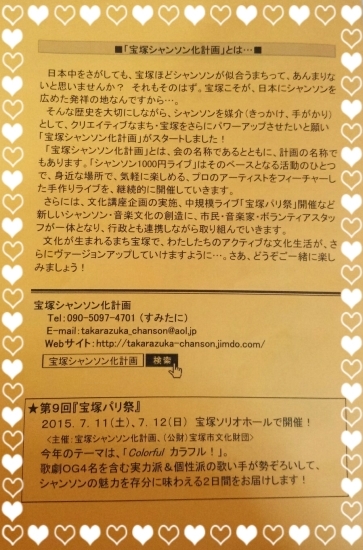 ■「宝塚シャンソン化計画」とは…■
日本中をさがしても、宝塚ほどシャンソンが似合うまちって、あんまりな
いと思いませんか？ それもそのはず。宝塚こそが、日本にシャンソンを
広めた発祥の地なんですから…。
そんな歴史を大切にしながら、シャンソンを媒介（きっかけ、手がかり）
として、クリエイティブなまち・宝塚をさらにパワーアップさせたいと願い
「宝塚シャンソン化計画」がスタートしました！
「宝塚シャンソン化計画」とは、会の名称であるとともに、計画の名称で
もあります。「シャンソン1000円ライブ」はそのベースとなる活動のひとつ
で、身近な場所で、気軽に楽しめる、プロのアーティストをフィーチャーし
た手作りライブを、継続的に開催していきます。
さらには、文化講座企画の実施、中規模ライブ「宝塚パリ祭」開催など
新しいシャンソン・音楽文化の創造に、市民・音楽家・ボランティアスタッ
フが一体となり、行政とも連携しながら取り組んでいきます。
文化が生まれるまち宝塚で、わたしたちのアクティブな文化生活が、さ
らにヴァージョンアップしていけますように…。さあ、どうぞご一緒に楽し
みましょう！
宝塚シャンソン化計画
Tel：090-5097-4701（すみたに）
E-mail：takarazuka_chanson@aol.jp
Webサイト：http://takarazuka-chanson.jimdo.com/
宝塚シャンソン化計画 検索
★第9回『宝塚パリ祭』
2015．7．11（土）、7．12（日） 宝塚ソリオホールで開催！
〈主催：宝塚シャンソン化計画、（公財）宝塚市文化財団〉
今年のテーマは、「Colorful カラフル！」。
歌劇OG4名を含む実力派＆個性派の歌い手が勢ぞろいして、
シャンソンの魅力を存分に味わえる2日間をお届けします！